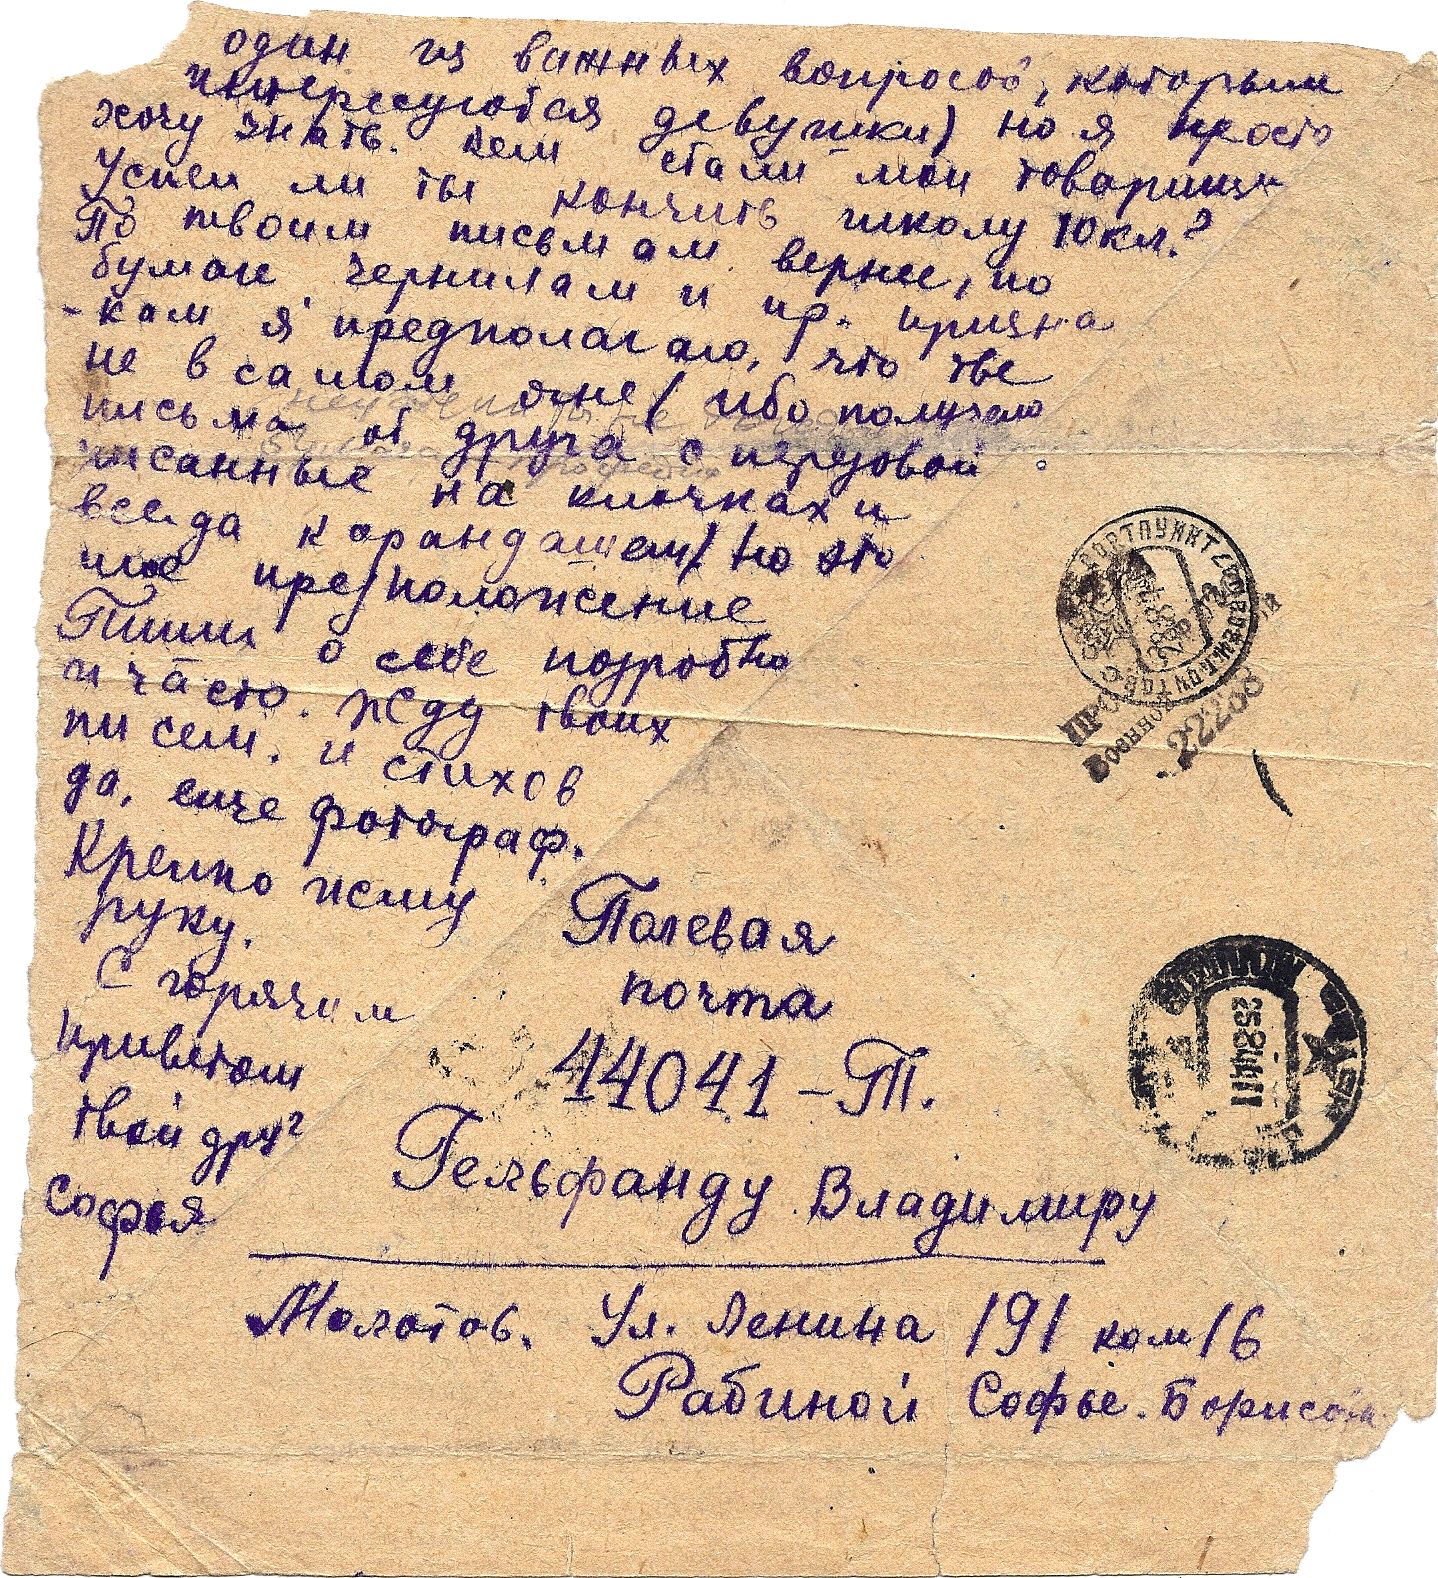 один из важных вопросов, которым
интересуются девушки) но я просто
хочу знать. кем стали мои товарищи
Успел ли ты кончить школу 10 кл.?
По твоим письмам вернее, по
бумаге чернилам и пр. призна
-кам я предполагаю, что ты
не в самом огне (ибо получаю
письма от друга с передовой
писанные на клочках и
всегда карандашем) но это
мое предположение
Пиши о себе подробно
и часто. Жду твоих
писем. и стихов
да, еще фотограф.
Крепко жму
руку.
С горячим
приветом
твой друг
Софья
Полевая
почта
44041-Т.
Гельфанду Владимиру
Молотов. Ул. Ленина 191 ком 16
Рабиной Софье. Борисовн.
22203
25 8 44 11